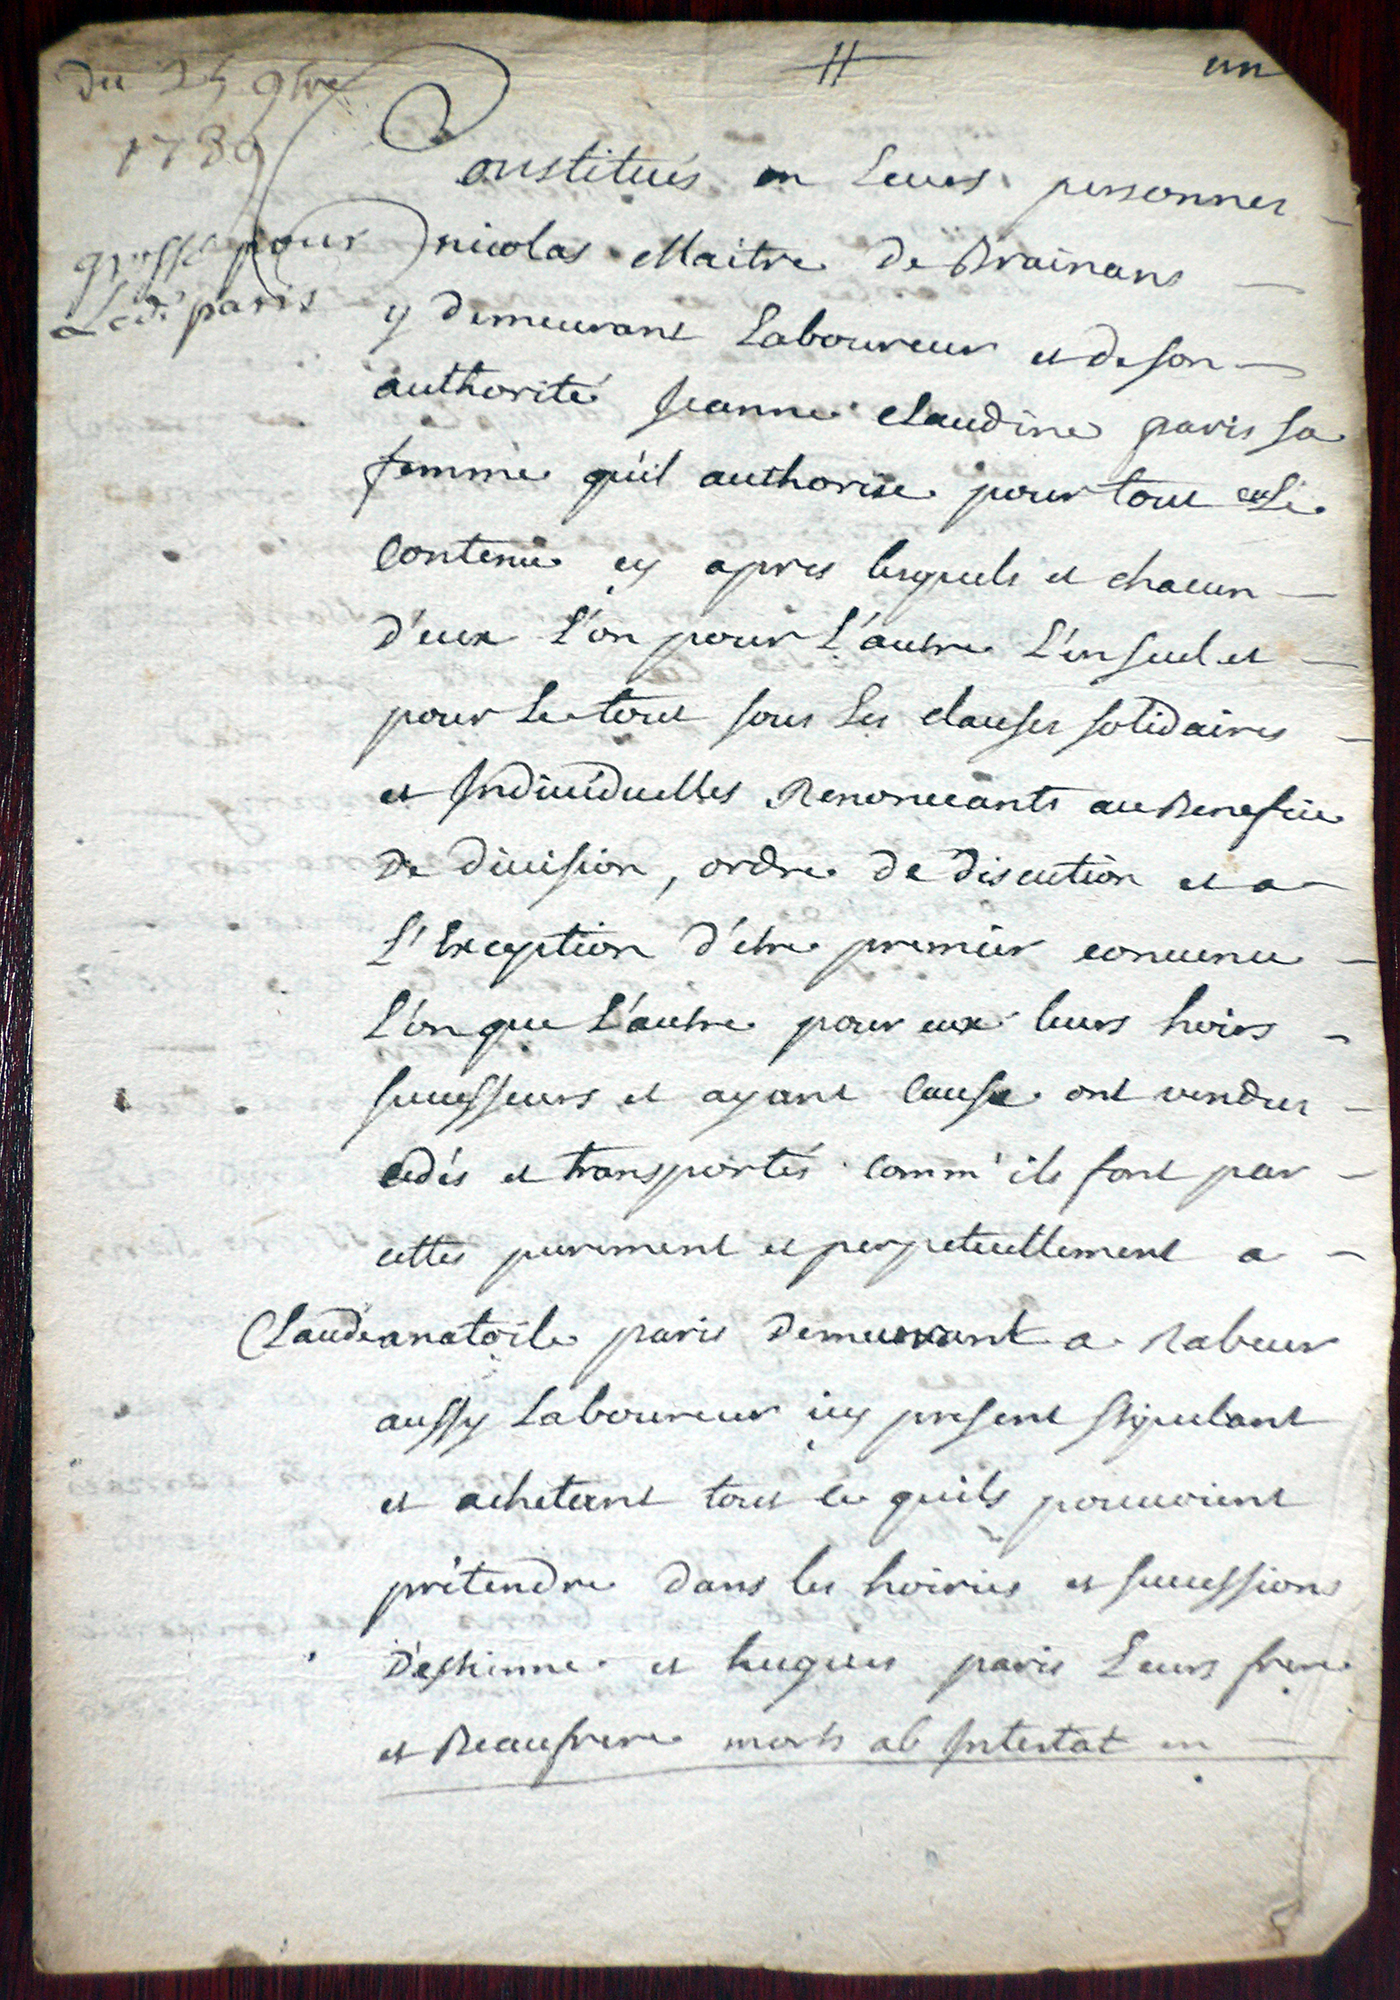 un
Du 25 9bre
1789
grosse pour
Led. paris
Constitués en leurs personnes
nicolas Maitre de Brainans
y demeurant Laboureur et de son
authorité Jeanne Claudine paris sa
femme qu'il authorise pour tout le
Contenu cy apres lesquels et chacun
d'eux l'on pour L'autre L'un seul et
pour Le tout sous Les clauses solidaires
et Individuelles Renoncants au Benefice
De division, ordre de discution et a
L'Exception d'etre premier convenu
L'on que L'autre pour eux leurs hoirs
successeurs et ayant Cause ont vendus
cédés et transportés comm' ils font par
cettes purement et perpetuellement a
Claude anatoile paris Demeurant a Rabeur
aussy Laboureur icy present stipulant
et achetant tout ce quils pouvoient
prétendre dans les hoiries et successions
D'estienne et hugues paris Leurs frere
et Beaufrere morts ab Intestat en